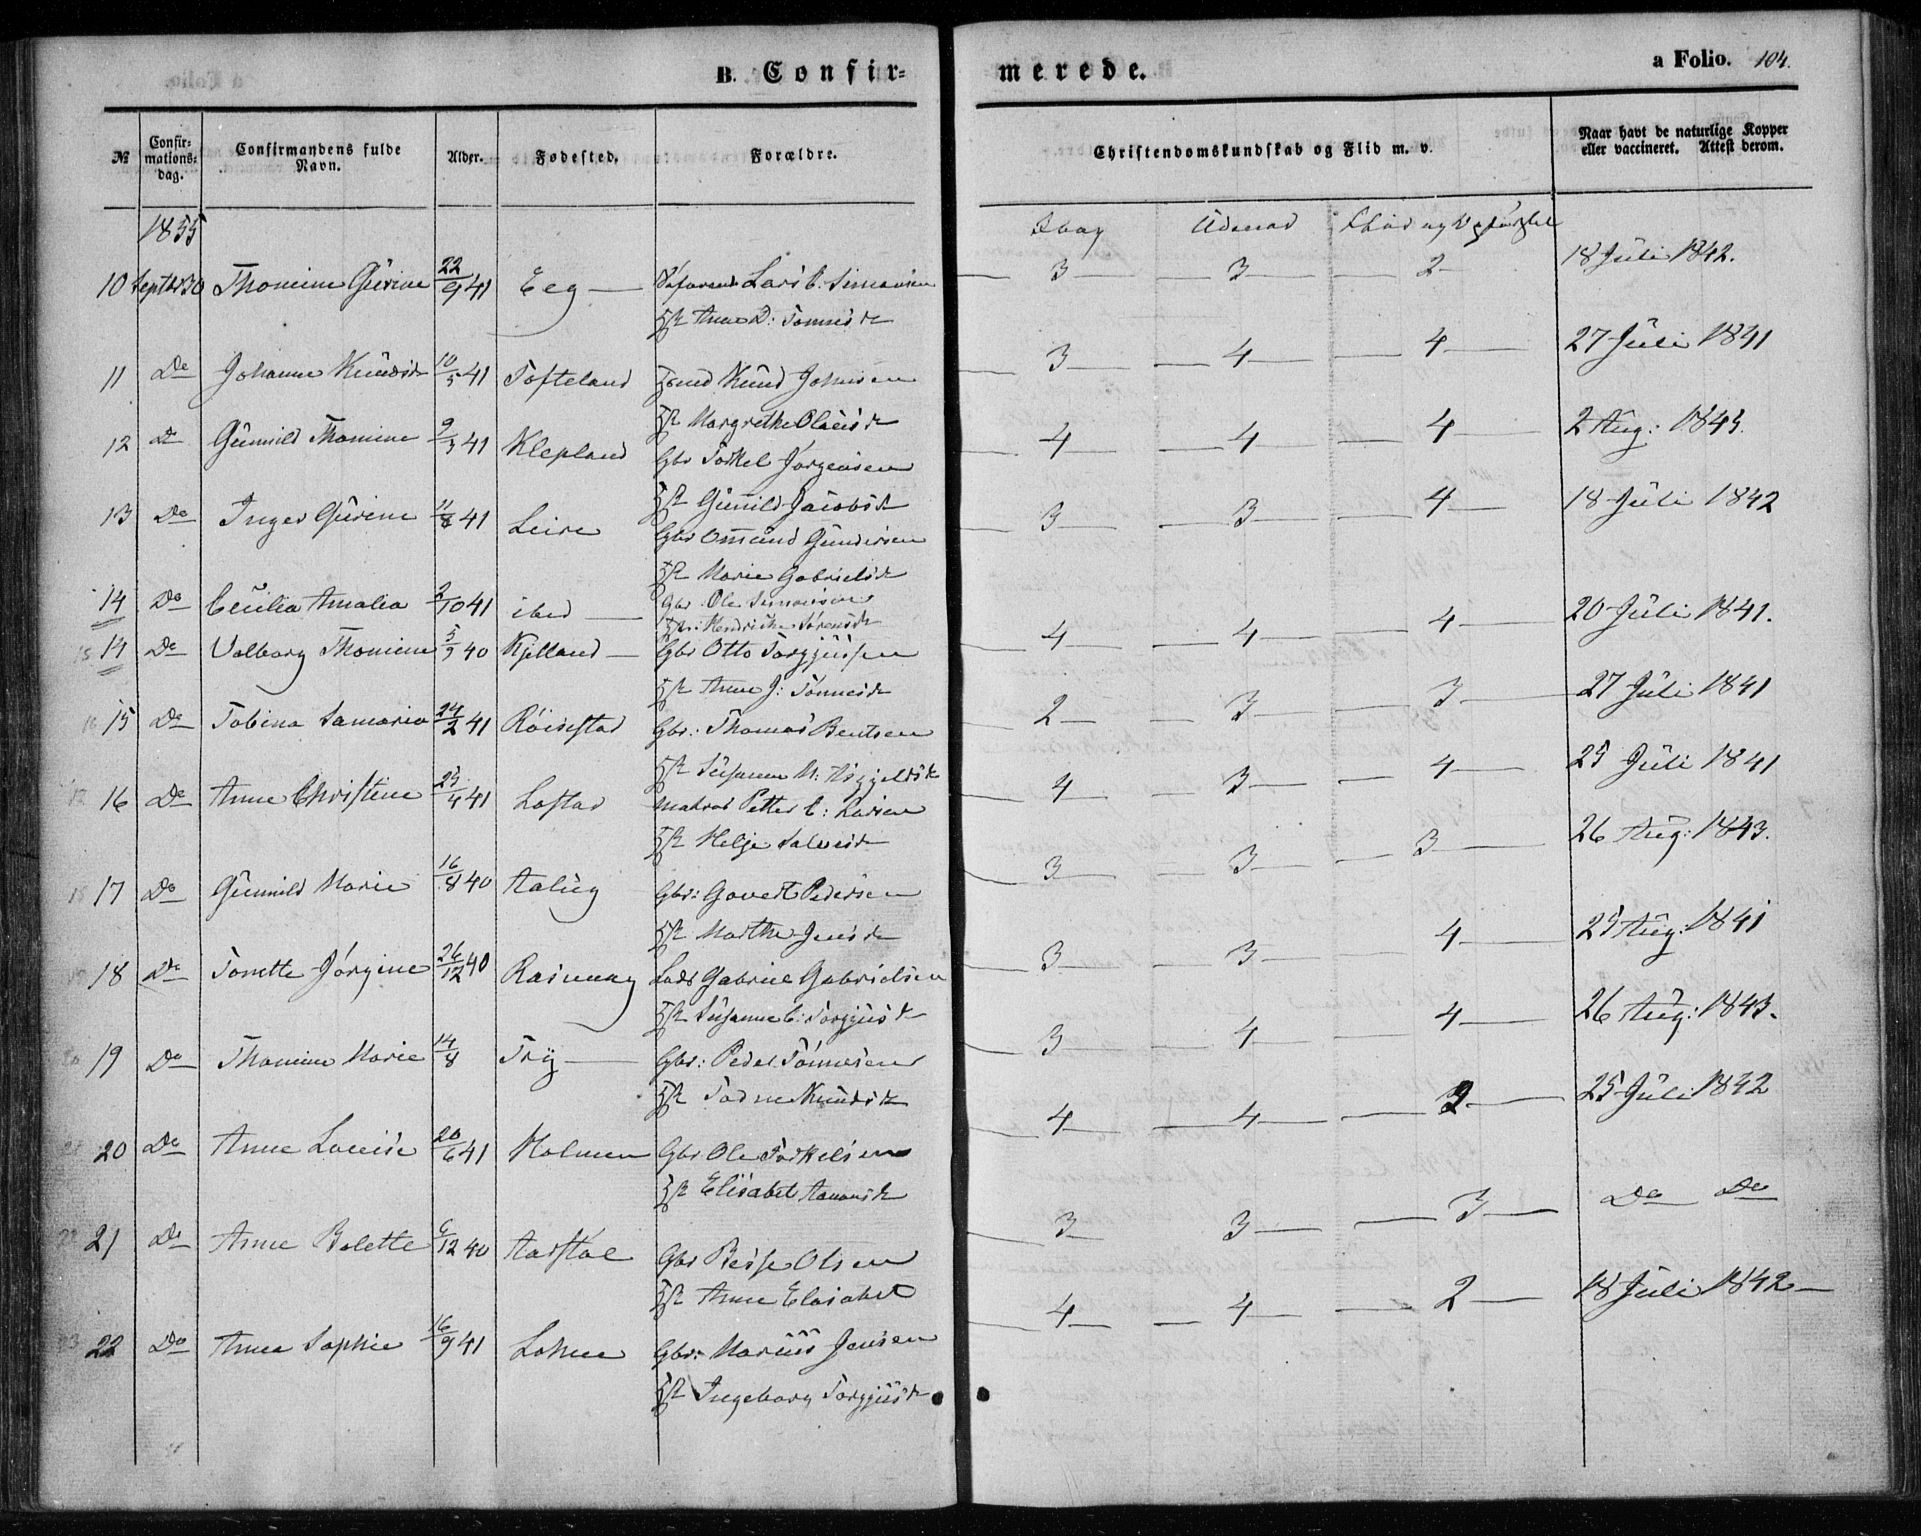 B. Confir=
merede.
a Folio. 104.
№
Confir=mations=dag.
Confirmandens fulde Navn.
Alder.
Fødested.
Forældre.
Christendomskundskab og Flid m. v.
Naar havt de naturlige Kopper eller vaccineret. Attest derom.
1855
10 Septbr 30 Thomine Gurine 22/9 41 Eeg Lars C. Simonsen 3 3 2 18 Juli 1842.
Anne D: Tønnesd
11 Do Johanne Knudsd 10/5 41 Tofteland Knud Johnsen 3 4 4 27 Juli 1841
Margrethe Olausd
12 Do Gunnild Thomine 9/3 41 Klepland Gbr Torkel Jørgensen 4 4 4 2 Aug: 1843.
Gunnild Jacobsd
13 Do Inger Gurine 11/8 41 Leire Gbr Ommund Gundersen 3 3 4 18 Juli 1842
Marie Gabrielsd
14 Do Cecilia Amalia 2/10 41 ibid Gbr. Ole Simonsen
Hendrikke Sørensd
15 14 Do Valborg Thomine 5/3 40 Kjelland Gbr Otto Torgjussen 4 4 4 20 Juli 1841.
Anne J: Tønnesd
16 15 Do Tobina Samaria 24/2 41 Røisstad Gbr: Thomas Bentsen 2 3 3 27 Juli 1841
Susanne M: Asgjeldsd
17 16 Do Anne Christine 25/4 41 Lastad Matros Petter C: Larsen 4 3 4 25 Juli 1841
Helje Salvesd
18 17 Do Gunnild Marie 16/8 40 Gbr: Govert Pedersen 3 3 3 26 Aug: 1843.
Marthe Jensd
19 18 Do Tonette Jørgine 26/12 40 Gabriel Gabrielsen 3 3 4 25 Aug: 1841
Susanne C: Torgjusd
20 19 Do Thomine Marie 14/8 Try Gbr: Peder Tønnesen 3 4 4 26 Aug: 1843.
Tarne Knudsd
21 20 Do Anne Louise 20/6 41 Holmen Gbr Ole Torkelsen 4 4 2 25 Juli 1842
Elisabet Aanensd
22 21 Do Anne Bolette 6/12 40 Aarstøl Gbr Berse Olsen 3 3 3 Do Do
Anne Elisabet
23 22 Do Anna Sophie 16/9 41 Lohne Gbr: Marius Jensen 4 4 2 18 Juli 1842
Ingeborg Torgjusd